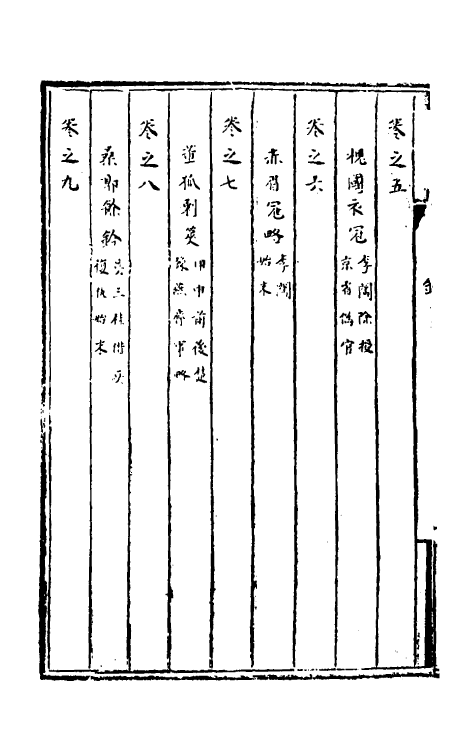 卷之五
槐國衣冠 李闖除授京省偽官
卷之六
赤眉寇略 李闖始末
卷之七
董狐剩筴 甲申前後楚豫燕齊軍略
卷之八
桑郭餘鈐 吳三桂借兵復仇始末
卷之九